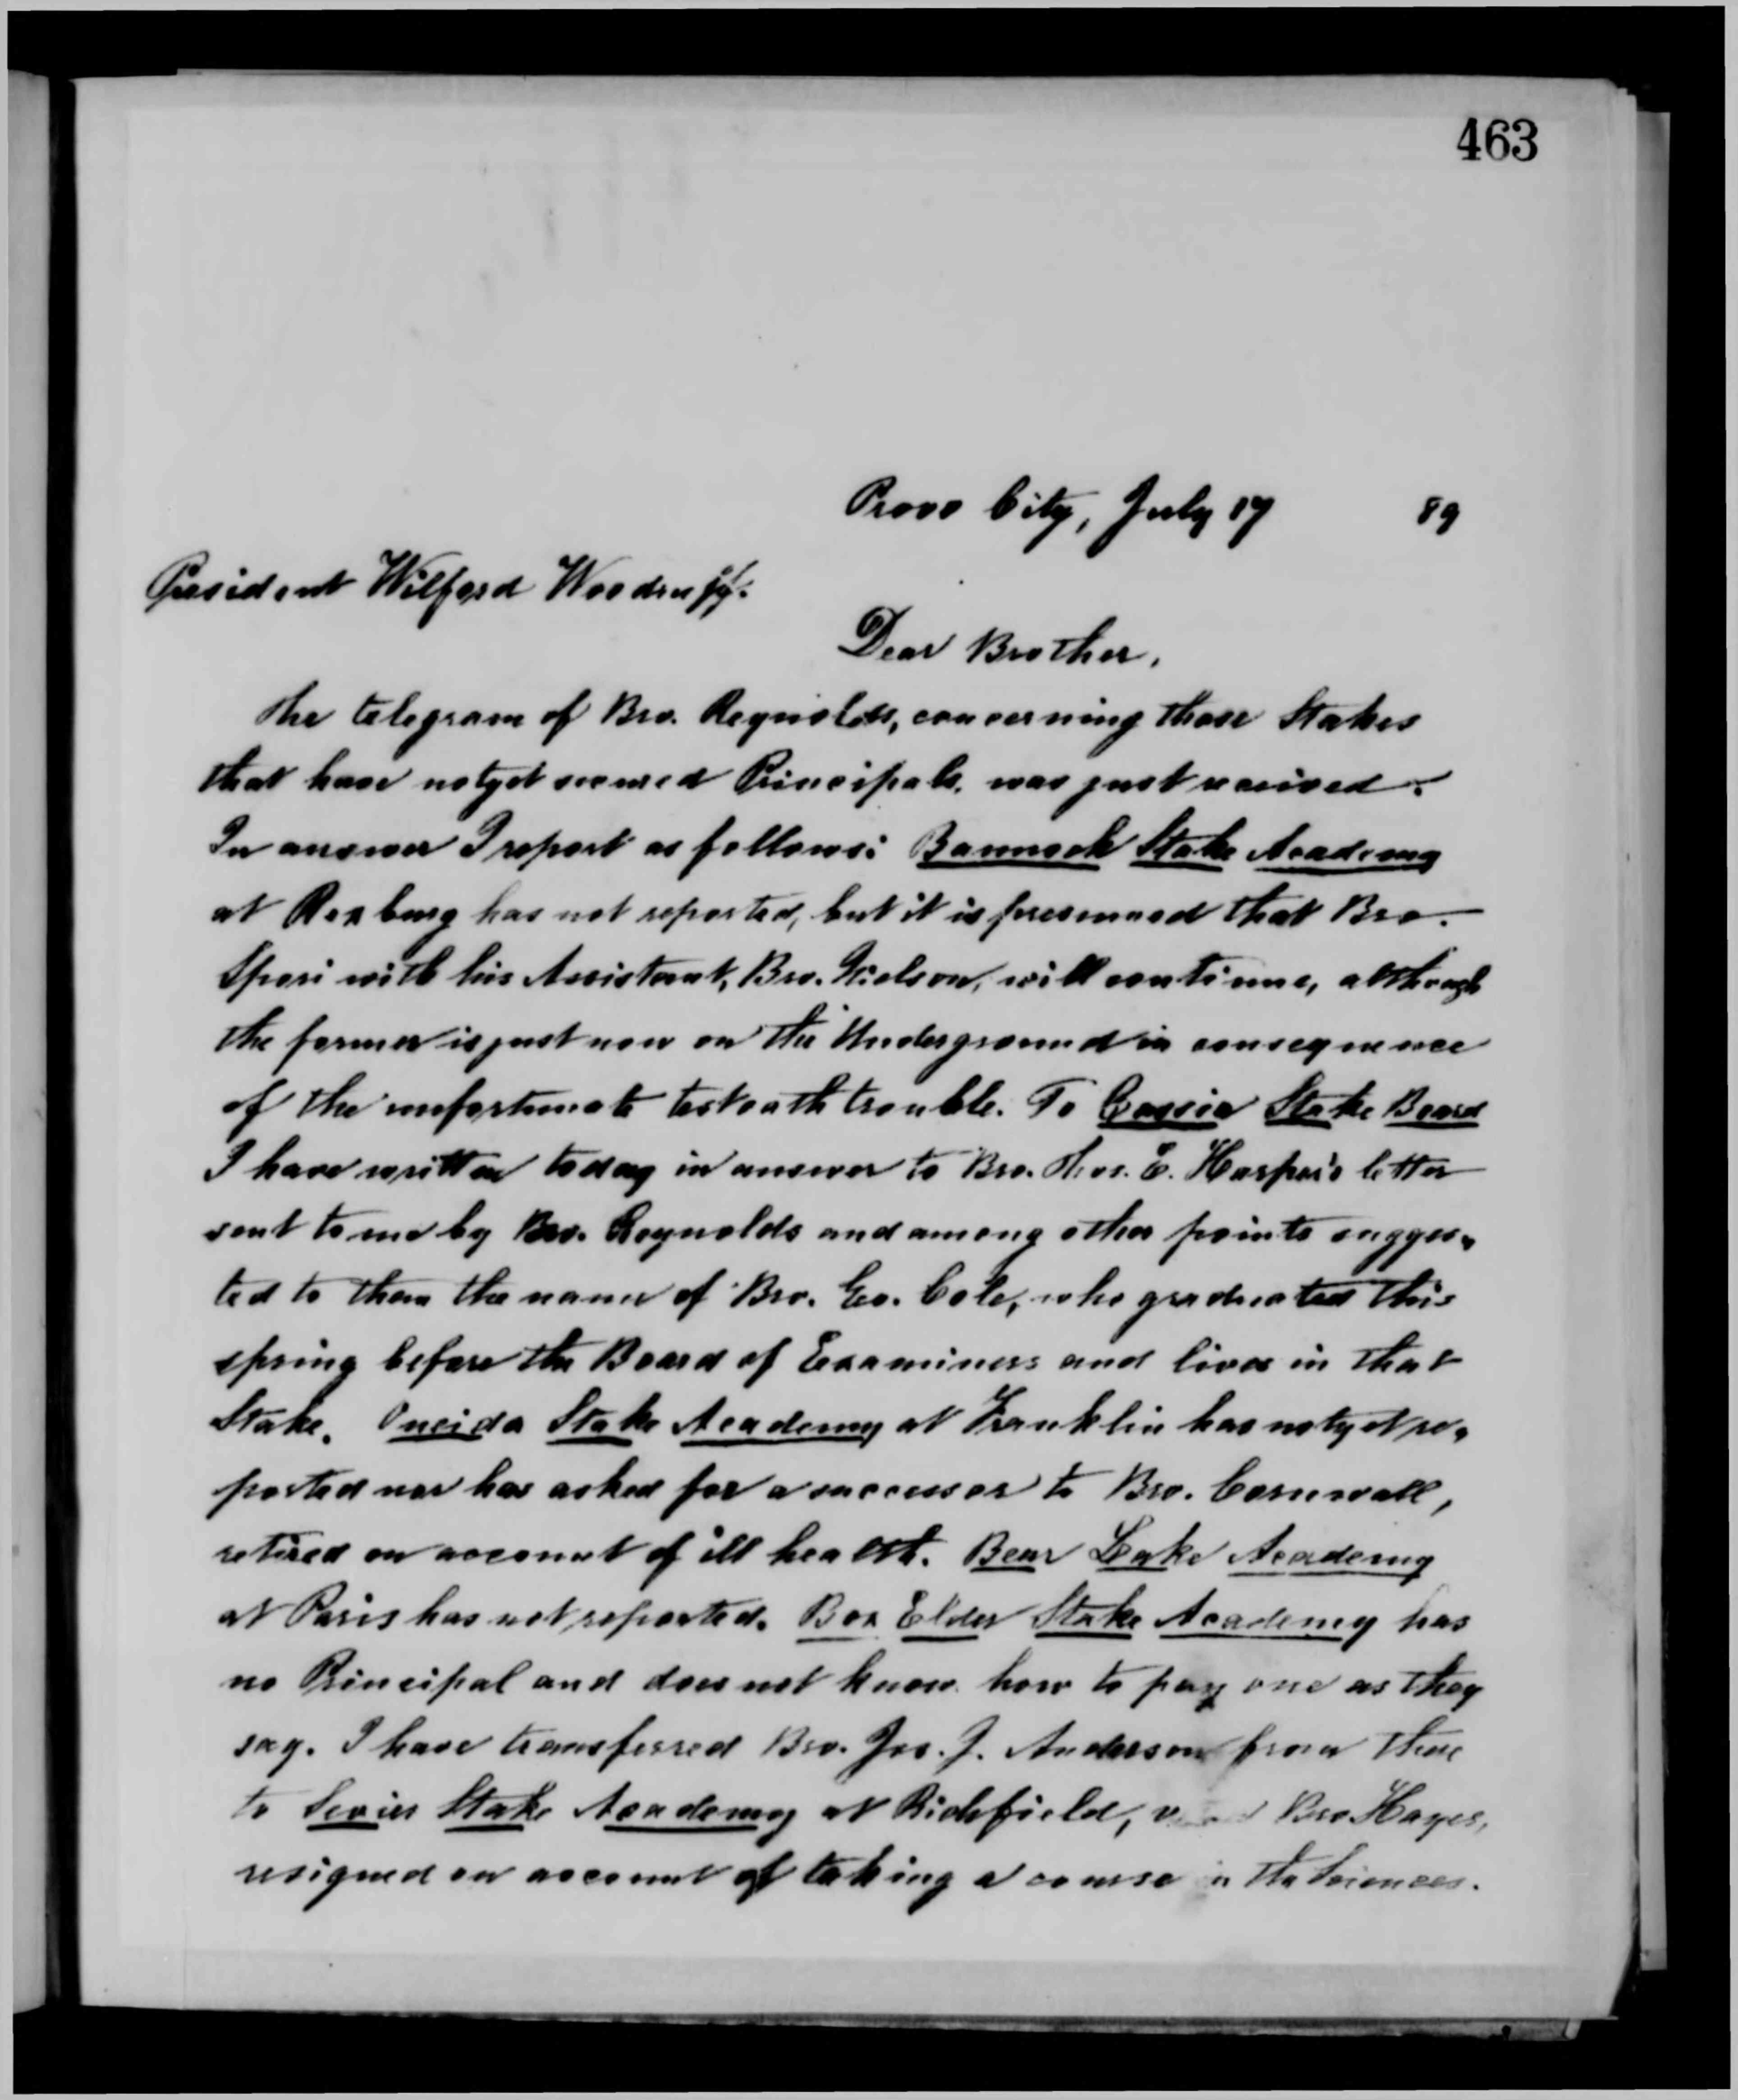 463
Provo City, July 17 89
President Wilford Woodruff.
Dear Brother,
The telegram of Bro. Reynolds, concerning those Stakes
that have not yet secured Principals, was just received.
In answer I report as follows: Bannock Stake Academy
at Rexburg has not reported, but it is presumed that Bro.
Spori with his Assistant, Bro. Nielson, will continue, although
the former is just now on the Underground in consequence
of the unfortunate testoath trouble. To Cassia Stake Board
I have written today in answer to Bro. Thos. E. Harper's letter
sent to me by Bro. Reynolds and among other points sugges-
ted to them the name of Bro. Geo. Cole, who graduated this
spring before the Board of Examiners and lives in that
Stake. Oneida Stake Academy at Franklin has not yet re-
ported nor has asked for a successor to Bro. Cornwall,
retired on account of ill health. Bear Lake Academy
at Paris has not reported. Box Elder Stake Academy has
no Principal and does not know how to pay one as they
say. I have transferred Bro. Jos. J. Anderson from there
to Sevier Stake Academy at Richfield, Bro. Hayes,
resigned on account of taking a course in the Sciences.